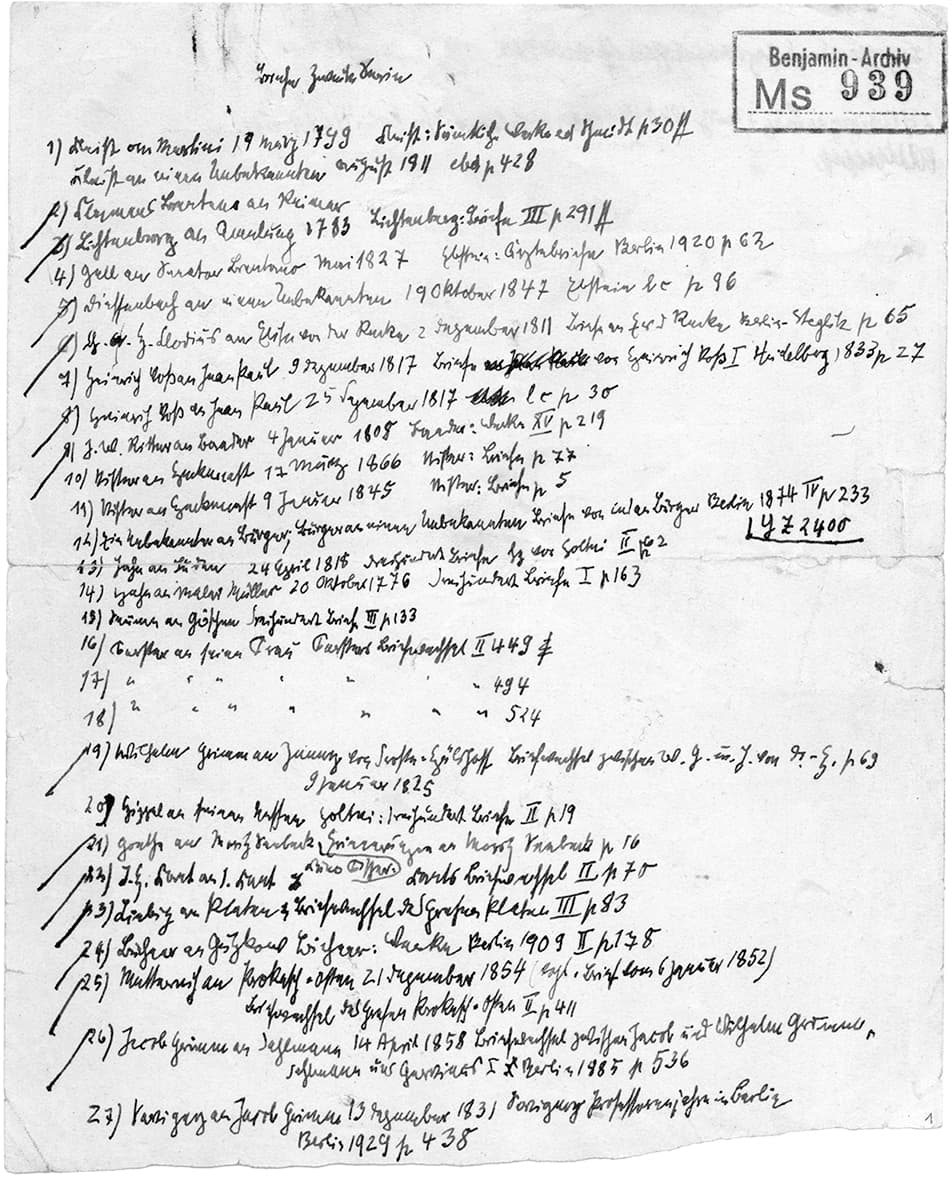 Briefe Zweite Serie
Benjamin-Archiv
Ms 939
1) Kleist an Martini 19 März 1799 Kleist: Sämtliche Werke ed Schmidt p 30 ff
Kleist an einen Unbekannten August 1811 ebd p 428
2) Clemens Brentano an Reimer
3) Lichtenberg an Amelung 1783 Lichtenberg: Briefe III p 291 ff
4) Gall an Senator Brentano Mai 1827 Ebstein: Ärztebriefe Berlin 1920 p 62
5) Dieffenbach an einen Unbekannten 19 Oktober 1847 Ebstein l c p 96
6) Clodius an Elisa von der Recke 2 Dezember 1811 Briefe an E v d Recke Berlin-Steglitz p 65
7) Heinrich Voß an Jean Paul 9 Dezember 1817 Briefe von Heinrich Voß I Heidelberg 1833 p 27
8) Heinrich Voß an Jean Paul 25 Dezember 1817 l c p 30
9) J. W. Ritter an Baader 4 Januar 1808 Baader: Werke XV p 219
10) an 17 März 1866 Briefe p 77
11) an 9 Januar 1845 Briefe p 5
12) Ein Unbekannter an Bürger; Bürger an einen Unbekannten Briefe von und an Bürger Berlin 1874 IV p 233
L YZ 2400
13) Jahn an Luden 24 April 1818 Dreihundert Briefe hg von Holtei II p 62
14) an Maler Müller 20 Oktober 1776 Dreihundert Briefe I p 163
15) Seume an Göschen Dreihundert Briefe III p 133
16) Forster an seine Frau Forsters Briefwechsel II 449
17) " " " " " " " 494
18) " " " " " " " 524
19) Wilhelm Grimm an Jenny von Droste-Hülshoff Briefwechsel zwischen W. G. u. J. von Dr.-H. p 69
9 Januar 1825
20) Hippel an seinen Neffen Holtei: Dreihundert Briefe II p 19
21) Goethe an Moritz Seebeck Erinnerungen an Moritz Seebeck p 16
Kuno Fischer:
22) J. H. Kant an I. Kant Kants Briefwechsel II p 70
23) Liebig an Platen Briefwechsel des Grafen Platen III p 83
24) Büchner an Gutzkow Büchner: Werke Berlin 1909 II p 178
25) Metternich an Prokesch-Osten 21 Dezember 1854 (vgl. Brief vom 6 Januar 1852)
Briefwechsel des Grafen Prokesch-Osten II p 411
26) Jacob Grimm an Dahlmann 14 April 1858 Briefwechsel zwischen Jacob und Wilhelm Grimm,
Dahlmann und Gervinus I Berlin 1885 p 536
27) Savigny an Jacob Grimm 13 Dezember 1831 Savigny Professorenjahre in Berlin
Berlin 1929 p 438
1